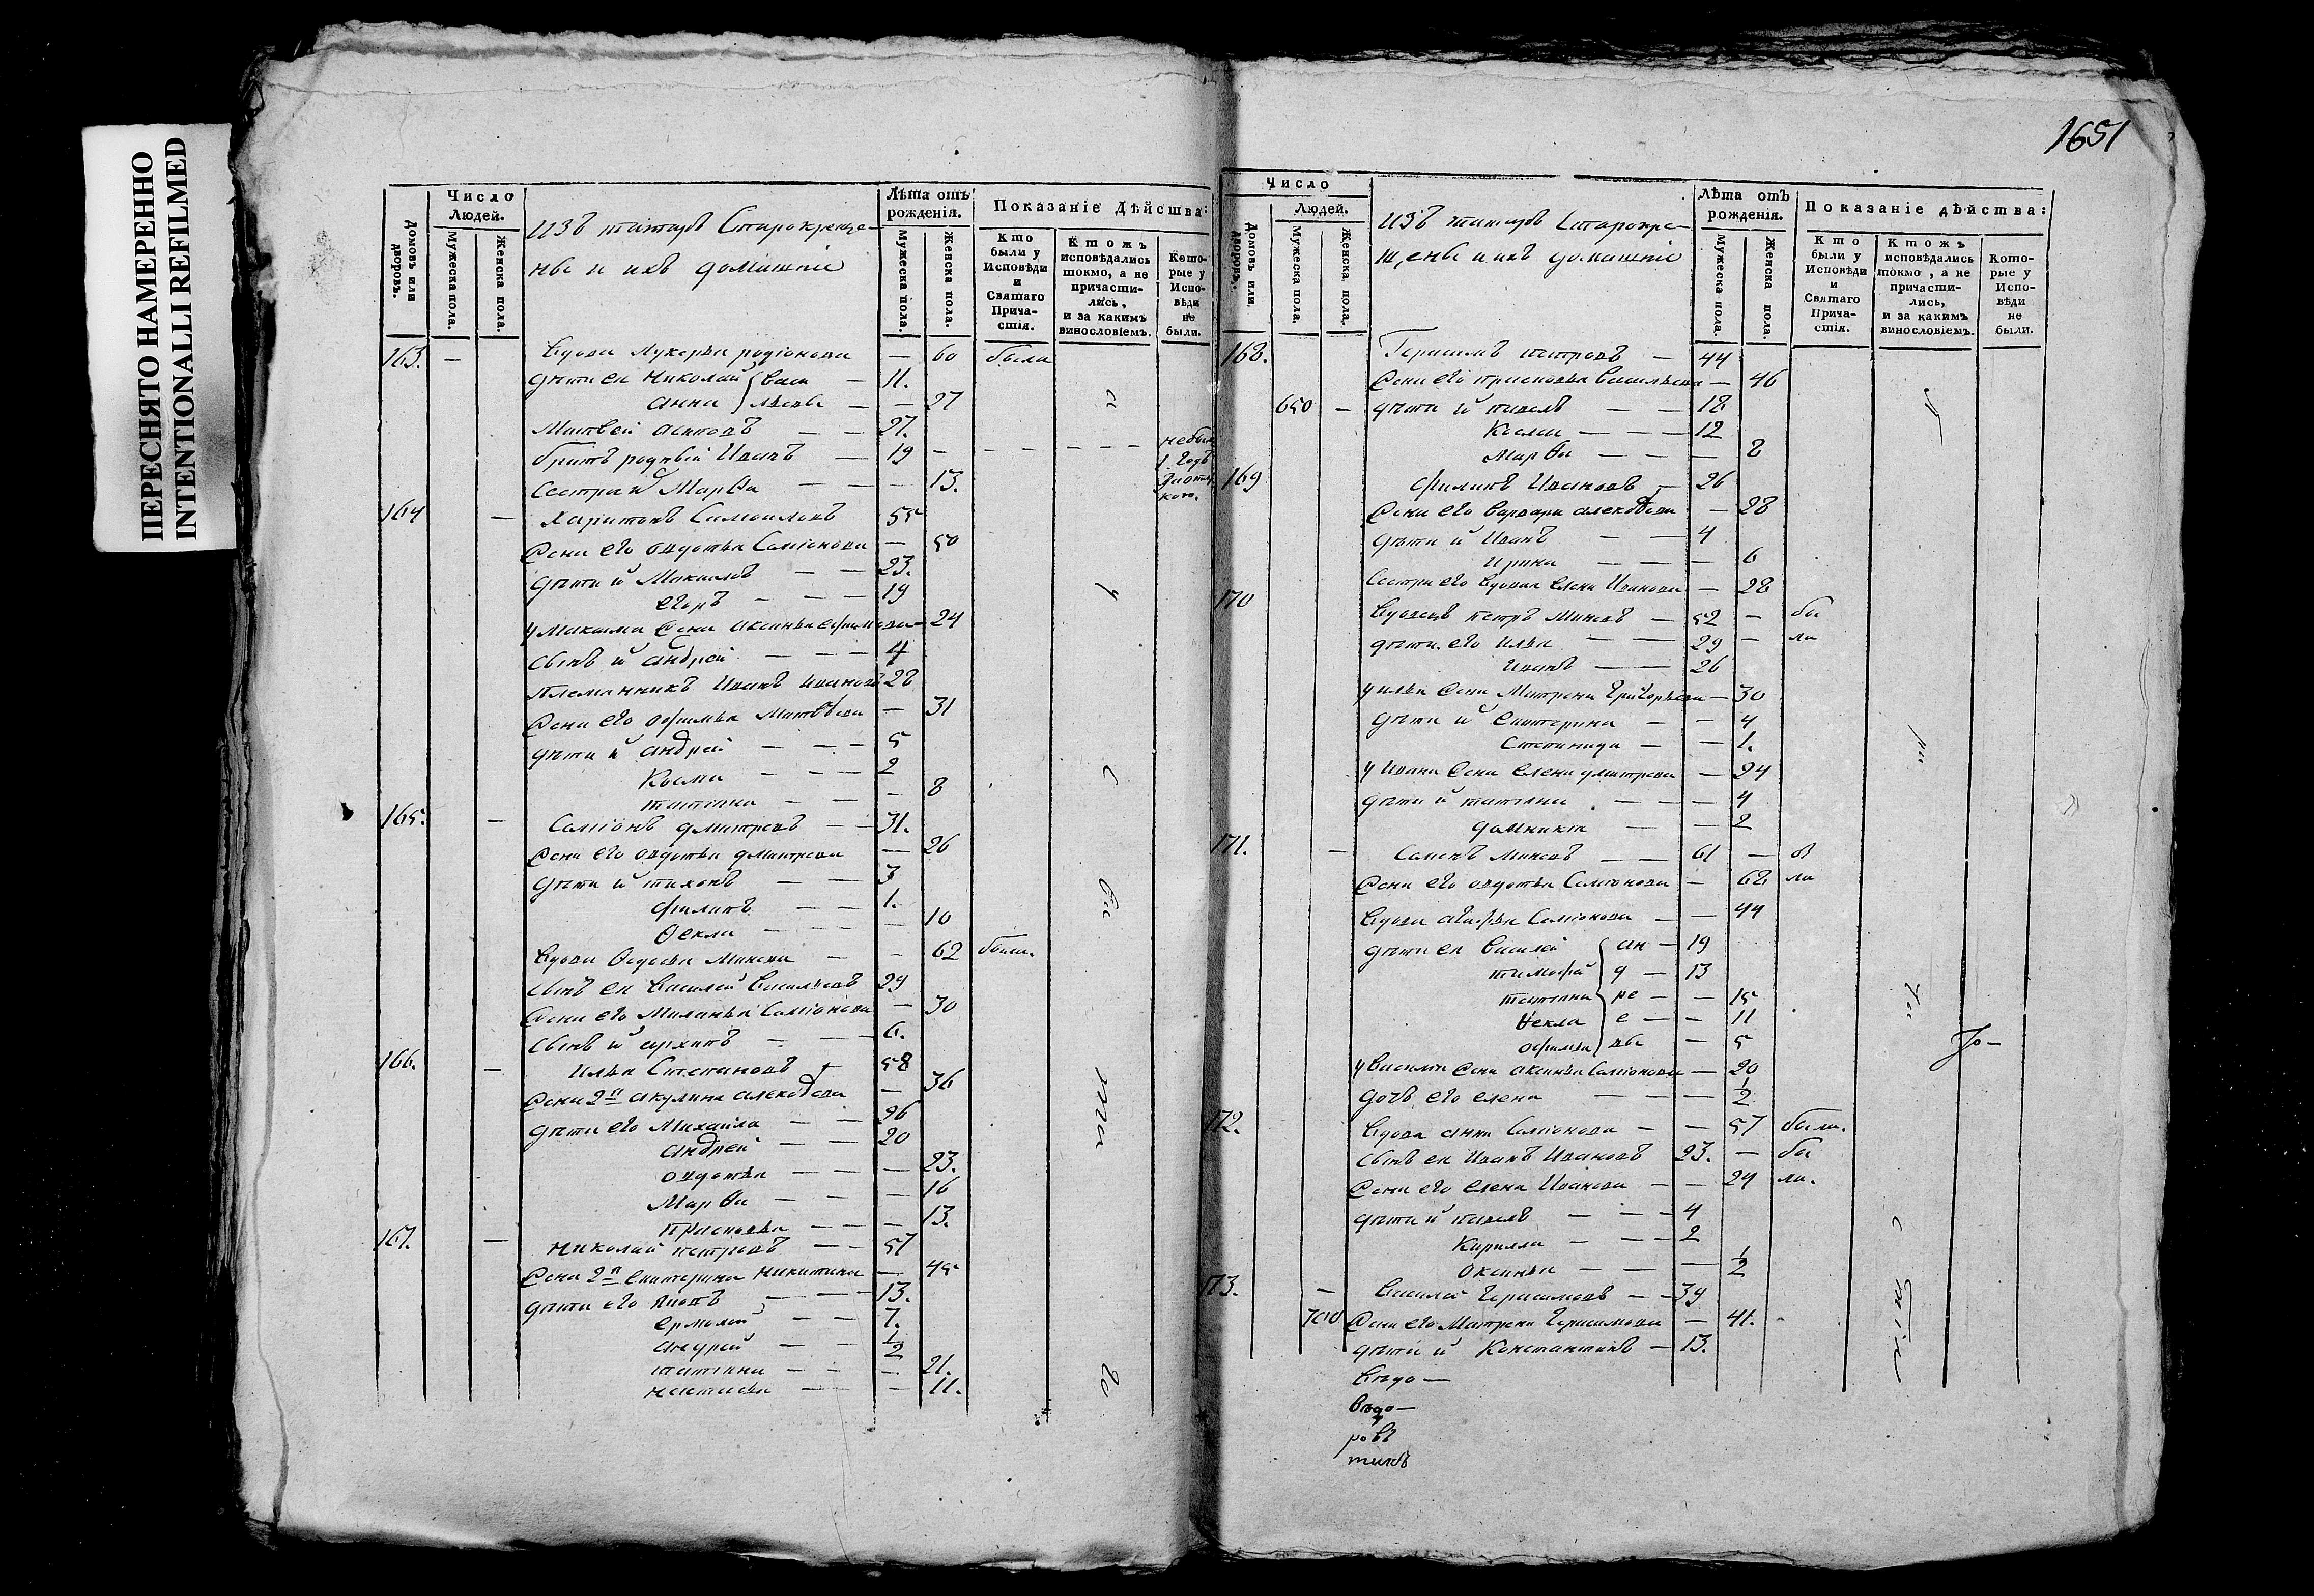 ПЕРЕСНЯТО НАМЕРЕННО
INTENTIONALLI REFILMED
Домовъ или дворовъ.
Число Людей.
Мужеска пола.
Женска пола.
изъ татаръ Старокреще-
ны и ихъ домашніе
Лѣта отъ рожденія.
Мужеска пола.
Женска пола.
Показаніе Дѣйства:
Кто были у Исповѣди и Святаго Прича-стія.
Ктожъ исповѣдались токмо, а не причасти-лись, и за какимъ винословіемъ.
Кото-рые у Испо-вѣди не были.
163. — Вдова Лукерья родіонова — 60 была
дѣти ея Николай } Васи — 11.
анна } льевы — — 27
Матвей — — 27.
братъ родный Иванъ — 19 — — — —
небыл
1. годъ
Сестра и Марѳа — — — 13.
164 — Харитонъ Самойловъ 55
Жена его овдотья Семіонова — 50
дѣти и Максимъ — — 23.
егоръ — — — 19
у Максима жена аксинья — 24
сынъ и андрей — — — 4
Племянникъ Иванъ Ивановъ 28
Жена его офимья Матвѣева — 31
дѣти и андрей — — — 5
Косма — — — 2
татіана — — — 8
165. — Семіонъ дмитревъ — — 31.
Жена его овдотья дмитрева — 26
дѣти и тихонъ — — 3
филипъ — — 1.
Ѳекла — — — — 10
Вдова Ѳедосья Минеева — — 62 была.
сынъ ея Василей Васильевъ 29
Жена его Маланья Семіонова — 30
сынъ и архипъ — — — 6.
166. — Илья Степановъ 58
Жена 2я акулина алексѣева — 36
дѣти его Михайла — — 26
андрей — — 20
овдотья — — — 23.
Марѳа — — — 16
Прасковья — — — 13.
167. — Николай петровъ — — 57
Жена 2я екатерина Никитина — 45
дѣти его — — — 13.
ермолай — — 7.
андрей — — 1/2
татіана — — — 21.
настасья — — — 11.
1651
Домовъ или дворовъ.
Число Людей.
Мужеска пола.
Женска пола.
изъ татаръ Старокре-
щены и ихъ домашніе
Лѣта отъ рожденія.
Мужеска пола.
Женска пола.
Показаніе дѣйства:
Кто были у Исповѣди и Святаго Прича-стія.
Ктожъ исповѣдались токмо, а не причасти-лись, и за какимъ винословіемъ.
Кото-рые у Испо-вѣди не были.
168. Герасимъ петровъ — 44
Жена его прасковья Васильева — 46
650 — дѣти и павелъ — — 18
Косма — — — 12
Марѳа — — — 8
169 филипъ Ивановъ — 26
Жена его варвара алексѣева — 28
дѣти и Иванъ — — 4
Ирина — — — 6
Сестра его вдовая елена Иванова — 28
170 Вдовецъ петръ Минеевъ — 52 — бы
дѣти его илья — — 29 — ли
Иванъ — — 26
у ильи жена Матрена Григорьева — 30
дѣти и екатерина — — 4
степанида — — 1.
у Ивана жена елена дмитрева — 24
дѣти и татіана — — 4
домникія — — 2
171. — Семенъ Минеевъ — — 61 — бы
Жена его овдотья Семіонова — 68 ли
Вдова агафья Семіонова — — 44
дѣти ея Василей { ан — 19
тимофей { д — 13
татіана { ре — — 15
Ѳекла { е — — 11
офимья { вы — 5
у Василья жена аксинья Семіонова — 20
дочь его елена — — — 1/2
172. Вдова анна Семіонова — — 57 была.
сынъ ея Иванъ Ивановъ 23. — бы
Жена его елена Иванова — — 24 ли.
дѣти и павелъ — — — 4
Кирилла — — — 2
Оксинья — — — 1/2
173. — Василей Герасимовъ — — 39
700 Жена его Матрена Герасимова — 41.
дѣти и Константинъ — 13.